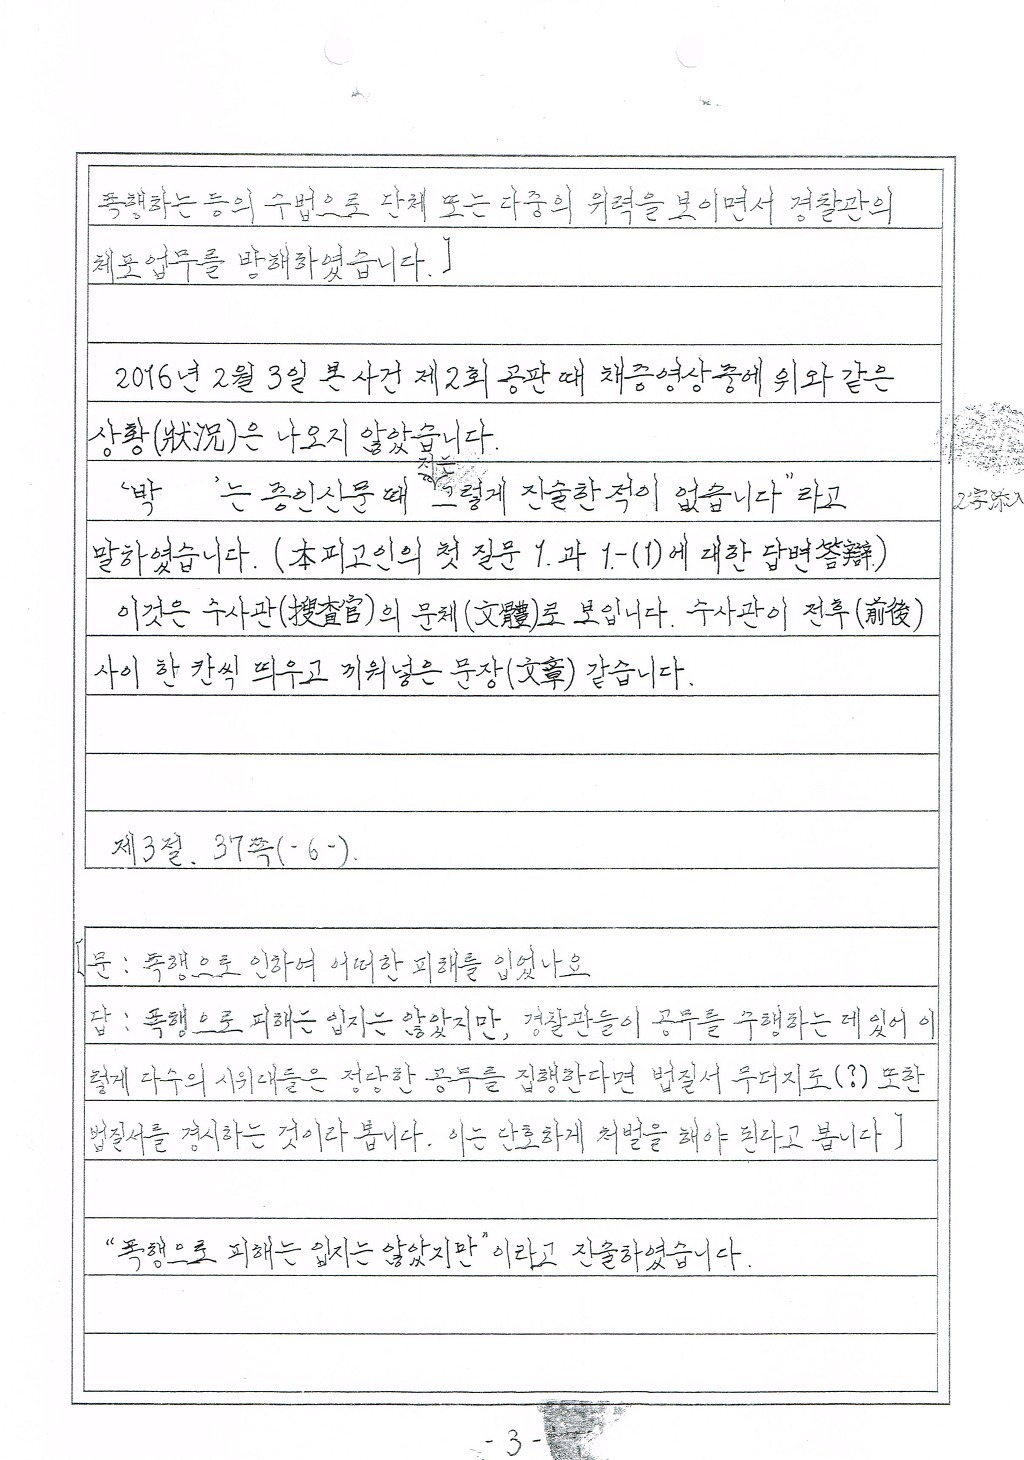 폭행하는 등의 수법으로 단체 또는 다중의 위력을 보이면서 경찰관의
체포업무를 방해하였습니다.]
2016년 2월 3일 본 사건 제2회 공판 때 채증영상 중에 위와 같은
상황(狀況)은 나오지 않았습니다.
저는
‘박 ’는 증인신문 때 “그렇게 진술한 적이 없습니다”라고
2字添入
말하였습니다. (本피고인의 첫 질문 1.과 1.-(1)에 대한 답변答辯.)
이것은 수사관(搜査官)의 문체(文體)로 보입니다. 수사관이 전후(前後)
사이 한 칸씩 띄우고 끼워넣은 문장(文章) 같습니다.
제3절. 37쪽(-6-).
[문 : 폭행으로 인하여 어떠한 피해를 입었나요
답 : 폭행으로 피해는 입지는 않았지만, 경찰관들이 공무를 수행하는 데 있어 이
렇게 다수의 시위대들은 정당한 공무를 집행한다면 법질서 무더지도(?) 또한
법질서를 경시하는 것이라 봅니다. 이는 단호하게 처벌을 해야 된다고 봅니다]
“폭행으로 피해는 입지는 않았지만”이라고 진술하였습니다.
- 3 -